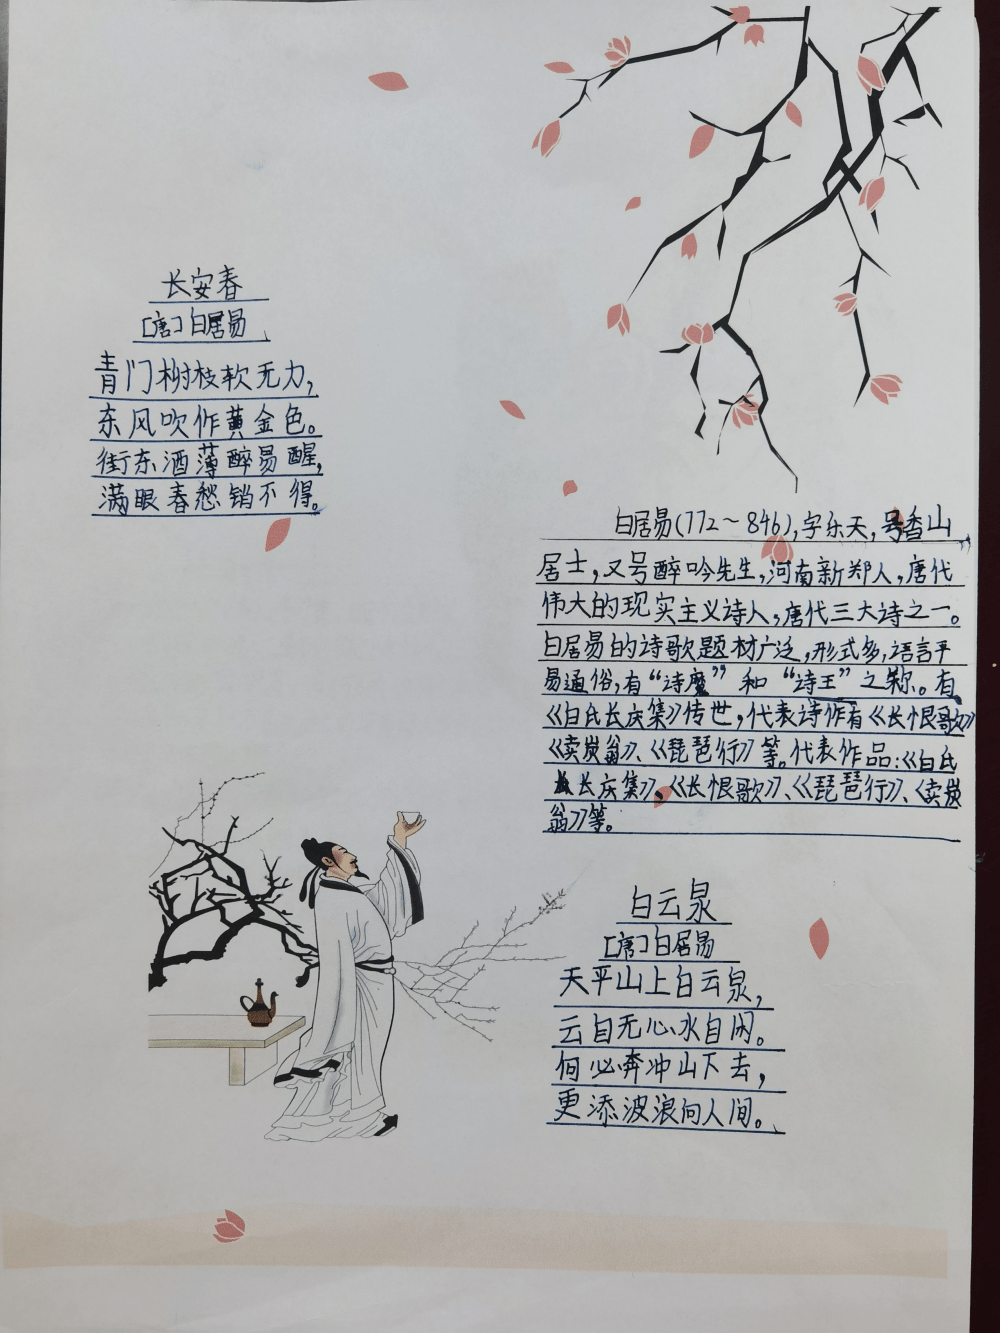 长安春
[唐]白居易
青门树枝软无力，
东风吹作黄金色。
街东酒薄醉易醒，
满眼春愁销不得。
白居易(772～846)，字乐天，号香山
居士，又号醉吟先生，河南新郑人，唐代
伟大的现实主义诗人，唐代三大诗之一。
白居易的诗歌题材广泛，形式多，语言平
易通俗，有“诗魔”和“诗王”之称。有
《白氏长庆集》传世，代表诗作有《长恨歌》
《卖炭翁》、《琵琶行》等。代表作品：《白氏
长庆集》、《长恨歌》、《琵琶行》、《卖炭
翁》等。
白云泉
[唐]白居易
天平山上白云泉，
云自无心水自闲。
何必奔冲山下去，
更添波浪向人间。